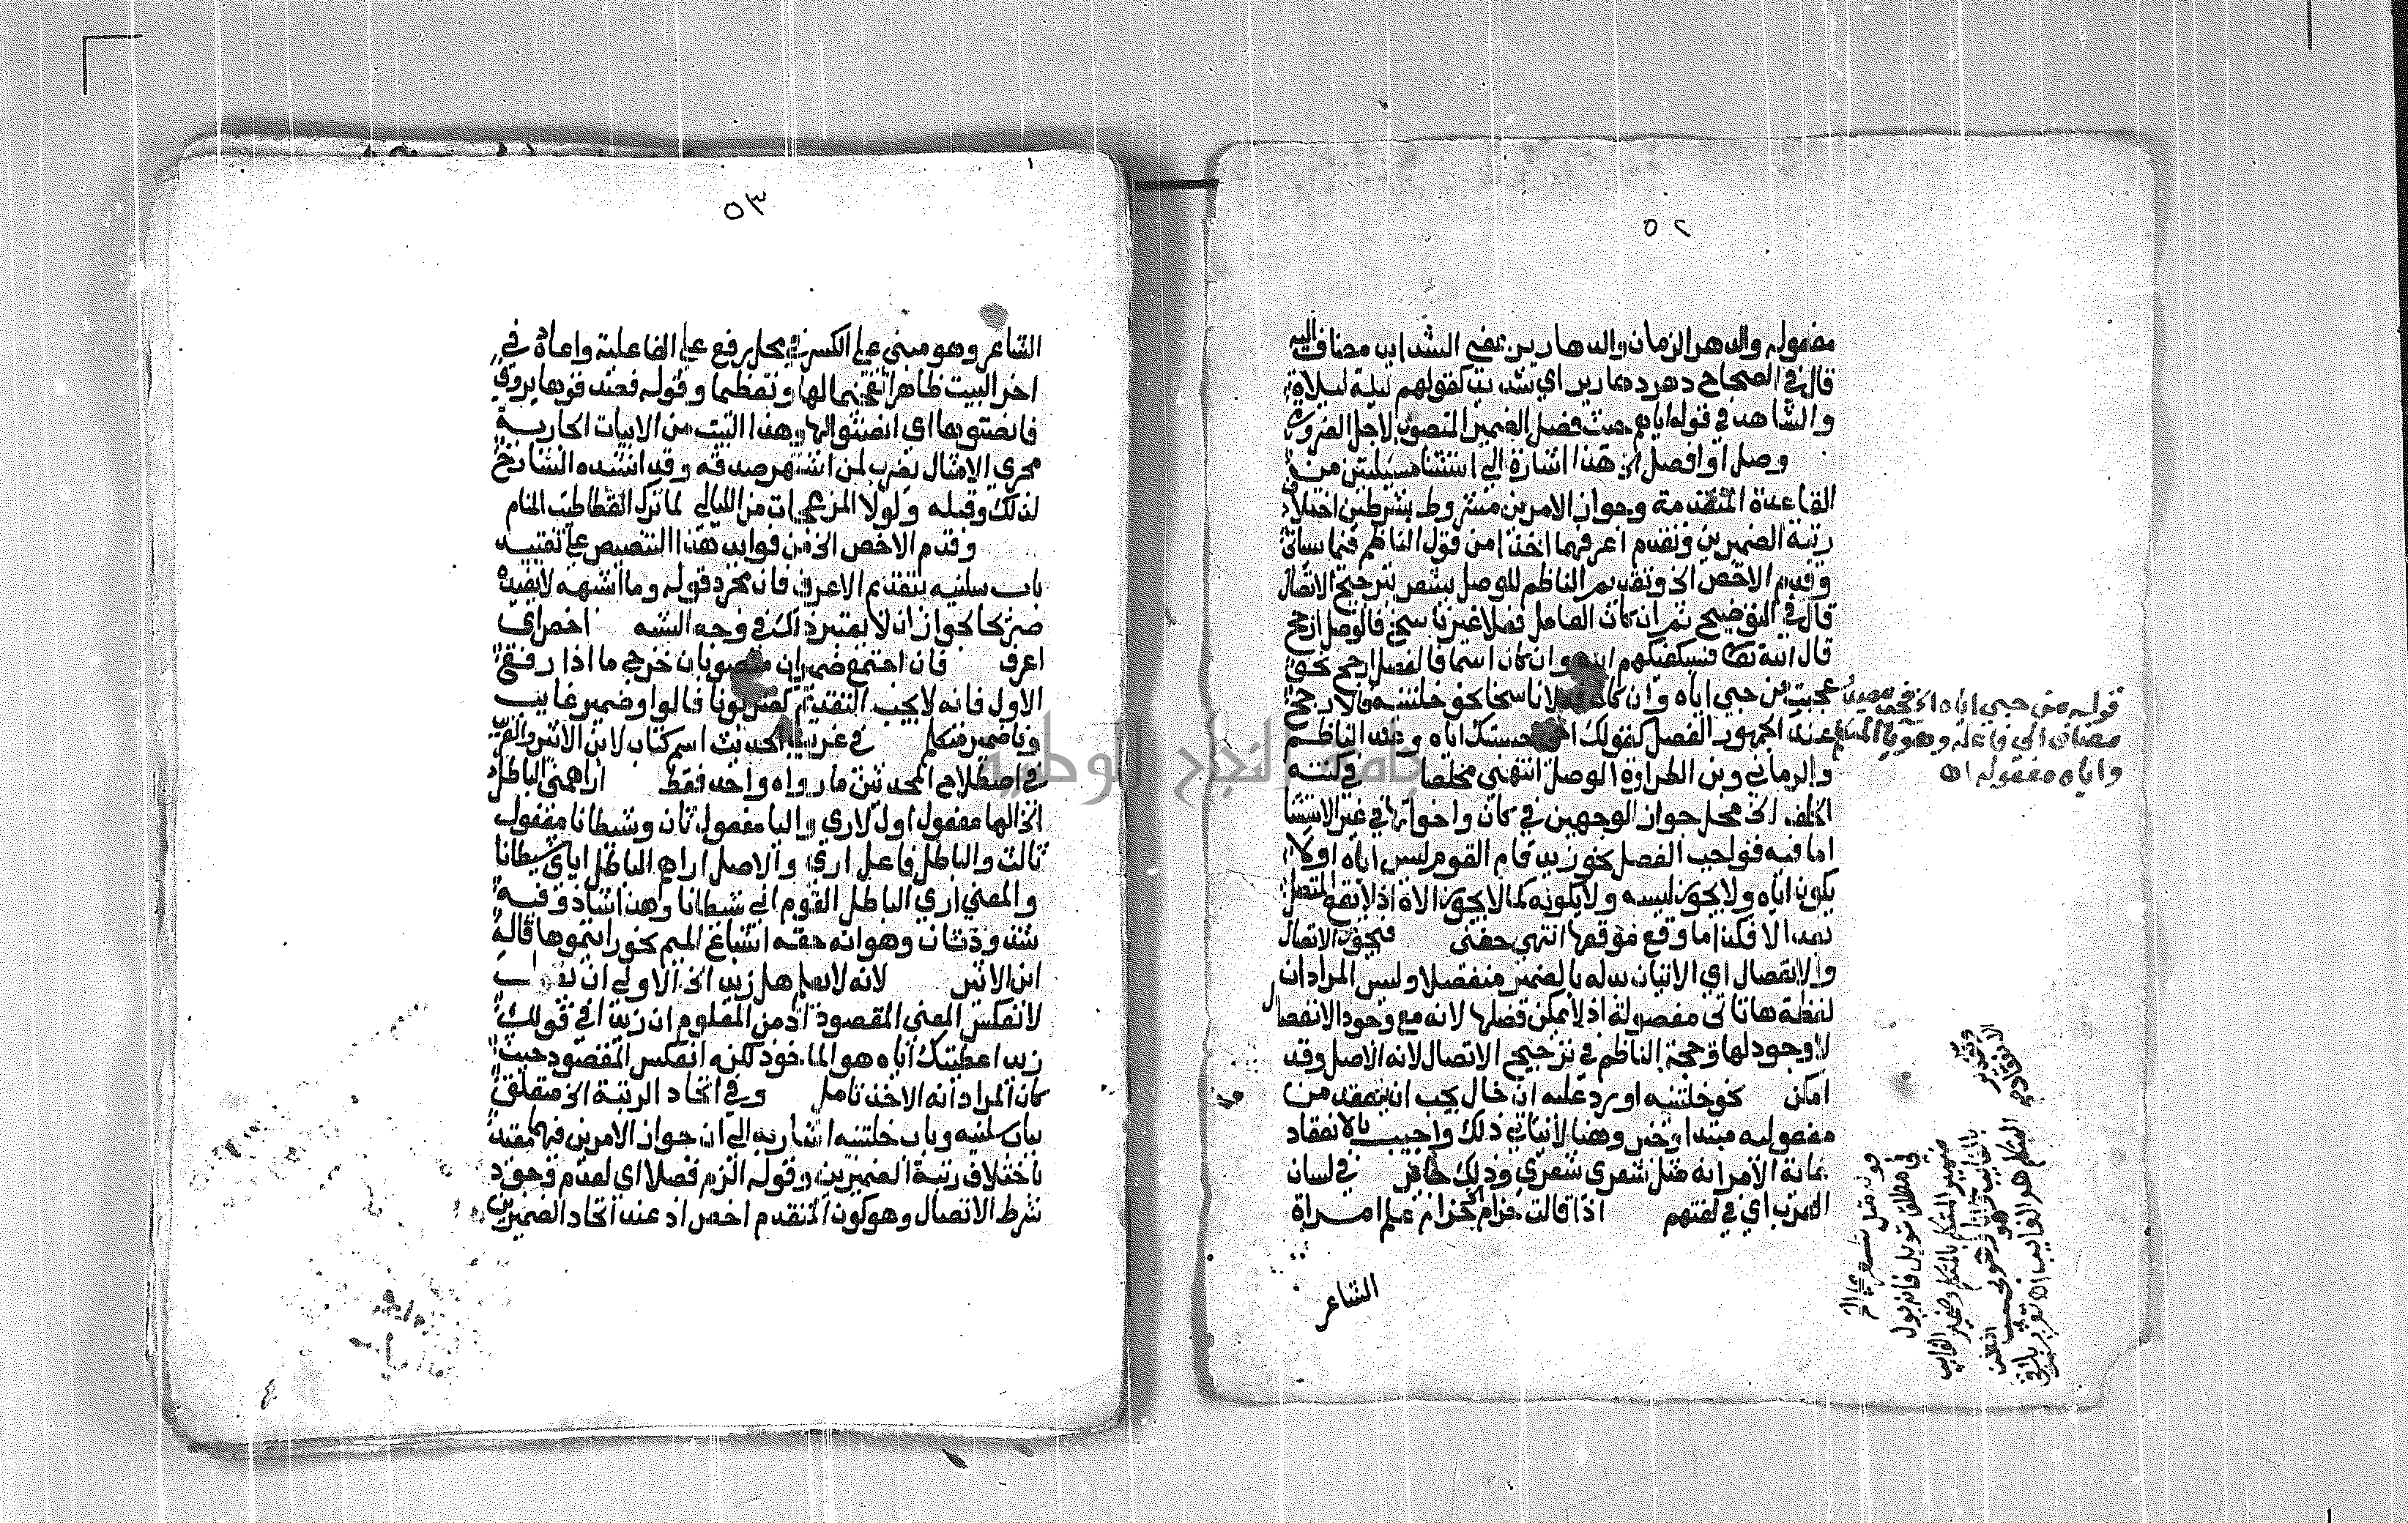 ٥٢
مفعوله والدهر الزمان والدهارير بمعنى الشدايد مضاف اليه
قال في الصحاح دهر دهارير اي شديد كقولهم ليلة ليلاء
والشاهد في قوله اياهم حيث فصل الضمير المنصوب لاجل الضرورة
وصل او افصل الخ هذا اشارة الى استثنا مسيلتين من
القاعدة المتقدمة وجواز الامرين مشروط بشرطين اختلاف
رتبة الضميرين وتقدم اعرفهما اخذا من قول الناظم فيما سياتي
وقدم الاخص الخ وتقديم الناظم للوصل يشعر بترجيح الاتصال
قال في التوضيح ثم ان كان العامل فعلا غير ناسخ فالوصل ارجح
قال الله تعالى فسيكفيكهم الله وان كان اسما فالفصل ارجح نحو
عجبت من حبي اياه وان كان فعلا ناسخا نحو خلتنيه فالارجح
عند الجمهور الفصل كقولك اخي حسبتك اياه وعند الناظم
والرماني وبن الطراوة الوصل انتهى مخلصا في كنته
الخلف الخ محل جواز الوجهين في كان واخواتها في غير الاستثنا
اما فيه فواجب الفصل نحو زيد قام القوم ليس اياه او لا
يكون اياه ولا يجوز ليسه ولا يكونه كما لا يجوز الاه اذ لا يقع المتصل
بعد الا فكذا ما وقع موقعها انتهى حفني فيجوز الاتصال
والانفصال اي الاتيان بدله بالضمير منفصلا وليس المراد ان
لفظة ها تاتي مفصولة اذ لا يمكن فصلها لانه مع وجود الانفصال
لا وجود لها وحجة الناظم في ترجيح الاتصال لانه الاصل وقد
امكن نحو خلتنيه اورد عليه ان خال يجب ان ينعقد من
مفعوليه مبتدا وخبر وهنا لا يتاتى ذلك واجيب بالانعقاد
غاية الامر انه مثل شعري شعري وذلك كاف في لسان
العرب اي في لغتهم اذا قالت حذام الخ حذام علم امراة
الشاعر
قوله من حبي اياه الخ فحب مصدر
مضاف الى فاعله وهو يا المتكلم
واياه مفعوله اه
قوله مثل شعري الخ
٥٣
الشاعر وهو مبنى على الكسر في محل رفع على الفاعلية واعاده في
اخر البيت ظاهرا تفخيما لها وتعظيما وقوله فصدقوها يروى
فانصتوها اى انصتوا لها وهذا البيت من الابيات الجارية
مجرى الامثال يضرب لمن اشتهر صدقه وقد انشده الشارح
لذلك وقبله ولولا المزعجات من الليالي لما ترك القطا طيب المنام
وقدم الاخص الخ من فوايد هذا التنصيص على تقييد
باب سلنيه بتقديم الاعرف فان مجرد قوله وما اشبهه لا يفيده
صريحا لجواز ان لا يعتبر ذلك في وجه الشبه اخص اي
اعرف فان اجتمع ضميران منصوبان خرج ما اذا رفع
الاول فانه لا يجب التقديم كضربونا فالواو ضمير غايب
ونا ضمير متكلم في غريب الحديث اسم كتاب لابن الاثير والغريب
في اصطلاح المحدثين ما رواه واحد فقط اراهمنى الباطل
الخ الها مفعول اول لارى واليا مفعول ثان وشيطانا مفعول
ثالث والباطل فاعل ارى والاصل اراهم الباطل اياي شيطانا
والمعنى ارى الباطل القوم اني شيطانا وهذا شاذ وفيه
شذوذ ثان وهو انه حقه اشباع الميم نحو رايتموها قاله
ابن الاثير لانه لا يعلم هل زيد الخ الاولى ان
لانعكس المعنى المقصود اذ من المعلوم ان زيدا في قولك
زيد اعطيتك اياه هو الماخوذ لكنه انعكس المقصود حيث
كان المراد انه الاخذ تامل وفي اتحاد الرتبة الخ متعلق
بباب سلنيه وباب خلتنيه اشار به الى ان جواز الامرين فيهما مقيد
باختلاف رتبة الضميرين وقوله الزم فصلا اى لعدم وجود
شرط الاتصال وهو كون المتقدم اخص اذ عند اتحاد الضميرين
جامعة النجاح الوطنية